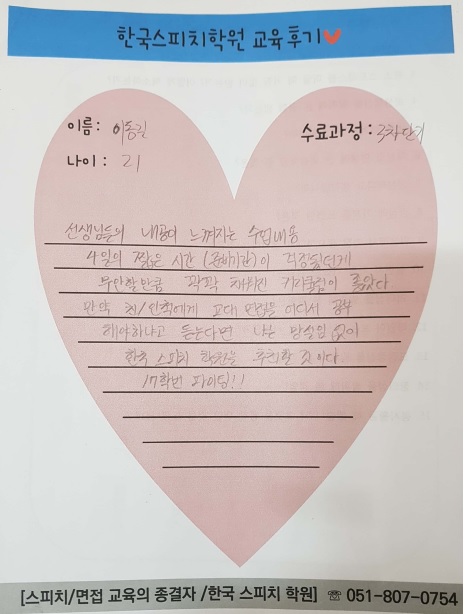 한국스피치학원 교육후기
이름: 이동길
수료과정: 4차단기
나이: 21
선생님들의 내공이 느껴지는 수업내용
4일의 짧은 시간 (준비기간)이 걱정됐던게
무안할만큼 꽉꽉 채워진 커리큘럼이 좋았다
만약 친/인척에게 교대 면접을 어디서 공부
해야하냐고 듣는다면 나는 망설임 없이
한국 스피치 학원을 추천할 것이다.
17학번 파이팅!!
[스피치/면접 교육의 종결자 /한국 스피치 학원] ☏ 051-807-0754